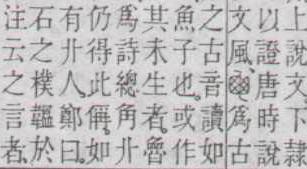 上說文下隸
以證唐時說
文風爲古
之古音讀如
魚子也。或作
其未生者。魯
爲詩總角卝
仍得此如
有卝人。鄭曰。
石之樸韞於
注云之言者。